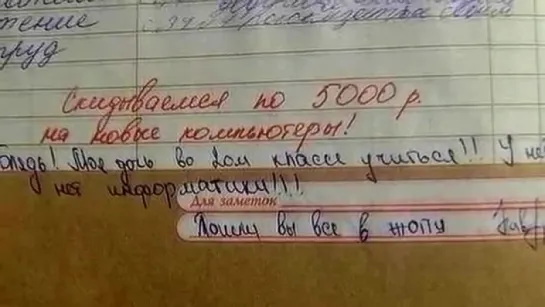 жение
труд
Скидываемся по 5000 р.
на новые компьютеры!
Моя дочь во 2ом классе учиться!! У неё
нет информатики!!!!
Для заметок
Пошли вы все в жопу